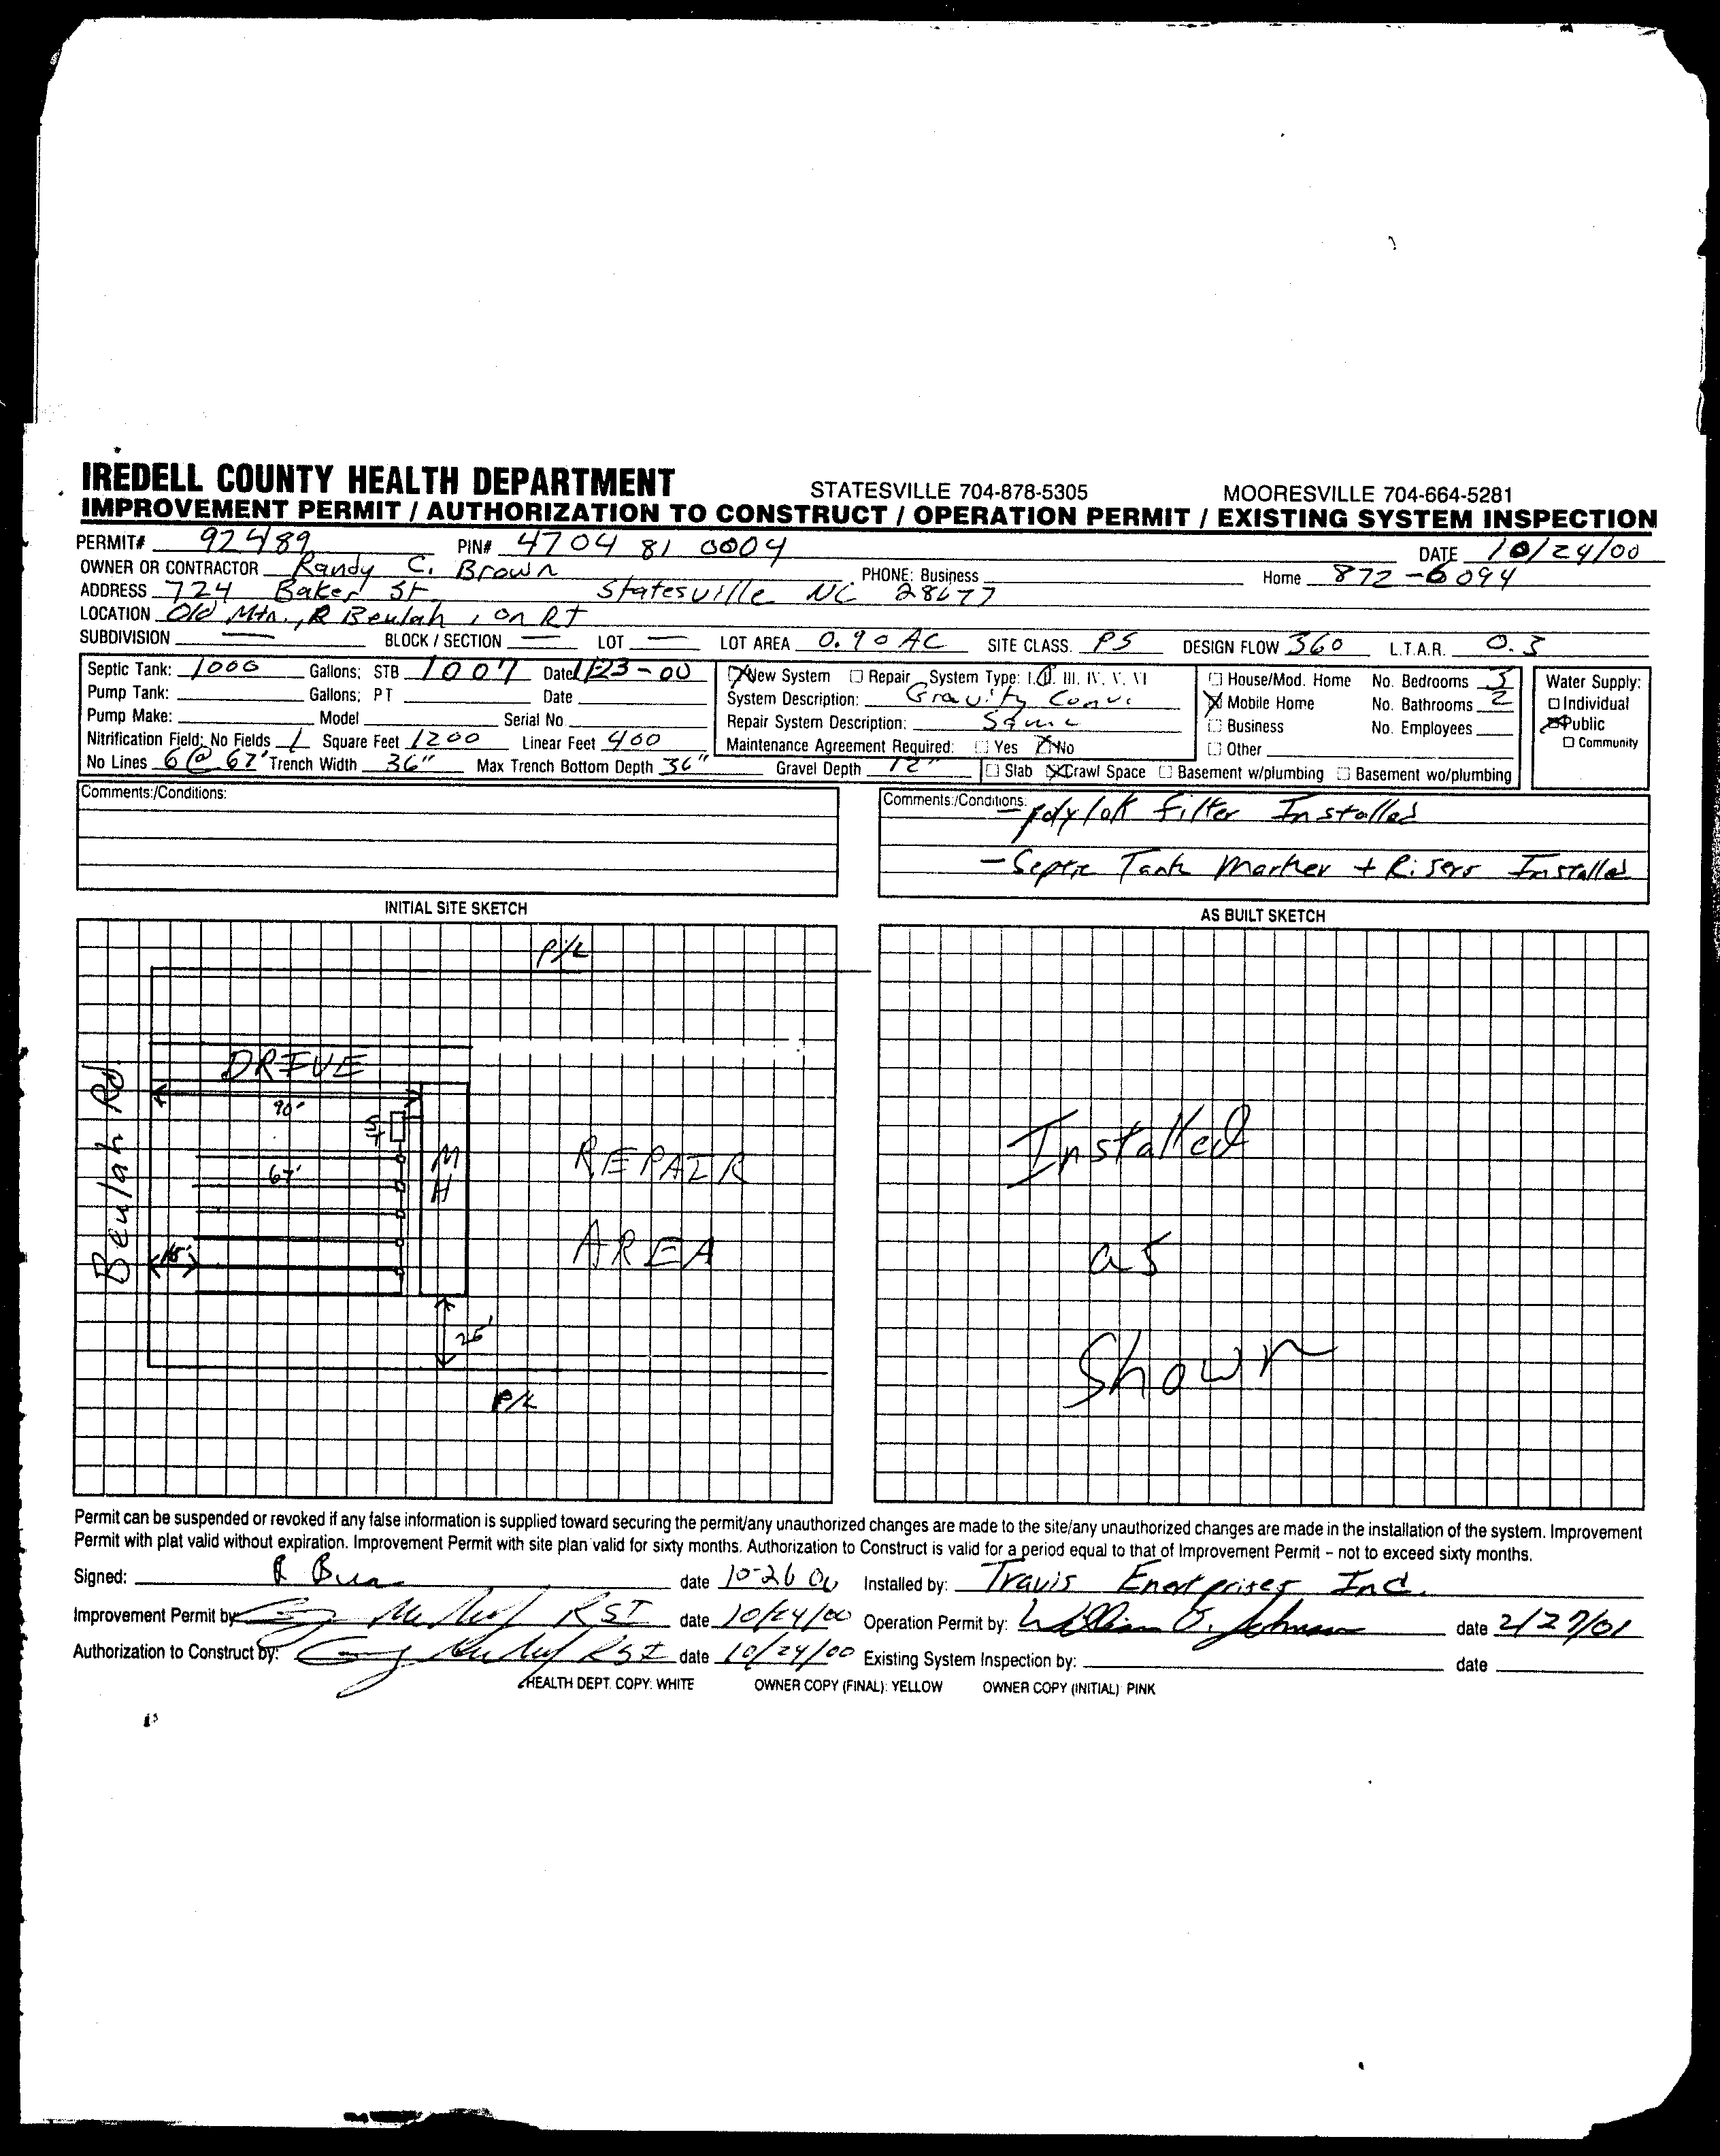 IREDELL COUNTY HEALTH DEPARTMENT STATESVILLE 704-878-5305 MOORESVILLE 704-664-5281
IMPROVEMENT PERMIT / AUTHORIZATION TO CONSTRUCT / OPERATION PERMIT / EXISTING SYSTEM INSPECTION
PERMIT# 92489 PIN# 4704 81 0004 DATE 10/24/00
OWNER OR CONTRACTOR Randy C. Brown PHONE: Business Home 872-6094
ADDRESS 724 Baker St Statesville NC 28677
LOCATION Old Mtn., R Beulah, on RT
SUBDIVISION — BLOCK / SECTION — LOT — LOT AREA 0.90 AC SITE CLASS. PS DESIGN FLOW 360 L.T.A.R. 0.3
Septic Tank: 1000 Gallons; STB 1007 Date 1/23-00 New System Repair System Type: I. II. III. IV. V. VI House/Mod. Home No. Bedrooms 3 Water Supply:
Pump Tank: Gallons; PT Date System Description: Gravity Conv. Mobile Home No. Bathrooms 2 Individual
Pump Make: Model Serial No Repair System Description: Same Business No. Employees Public
Nitrification Field; No Fields 1 Square Feet 1200 Linear Feet 400 Maintenance Agreement Required: Yes No Other Community
No Lines 6 @ 67' Trench Width 36" Max Trench Bottom Depth 36" Gravel Depth 12" Slab Crawl Space Basement w/plumbing Basement wo/plumbing
Comments:/Conditions: Comments:/Conditions: -polylok filter Installed
- Septic Tank Marker + Risers Installed
INITIAL SITE SKETCH AS BUILT SKETCH
P/L
DRIVE
90'
ST
67'
MH
REPAIR
AREA
Beulah Rd.
15'
25'
P/L
Installed
as
Shown
Permit can be suspended or revoked if any false information is supplied toward securing the permit/any unauthorized changes are made to the site/any unauthorized changes are made in the installation of the system. Improvement
Permit with plat valid without expiration. Improvement Permit with site plan valid for sixty months. Authorization to Construct is valid for a period equal to that of Improvement Permit – not to exceed sixty months.
Signed: date 10-26 00 Installed by: Travis Enerprises Inc.
Improvement Permit by: RSI date 10/24/00 Operation Permit by: William O. Johnson date 2/27/01
Authorization to Construct by: RSI date 10/24/00 Existing System Inspection by: date
HEALTH DEPT. COPY: WHITE OWNER COPY (FINAL): YELLOW OWNER COPY (INITIAL) PINK